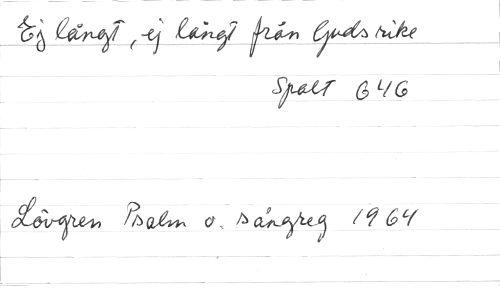 Ej långt, ej långt från Guds rike
Spalt 646
Lövgren Psalm o. sångreg 1964